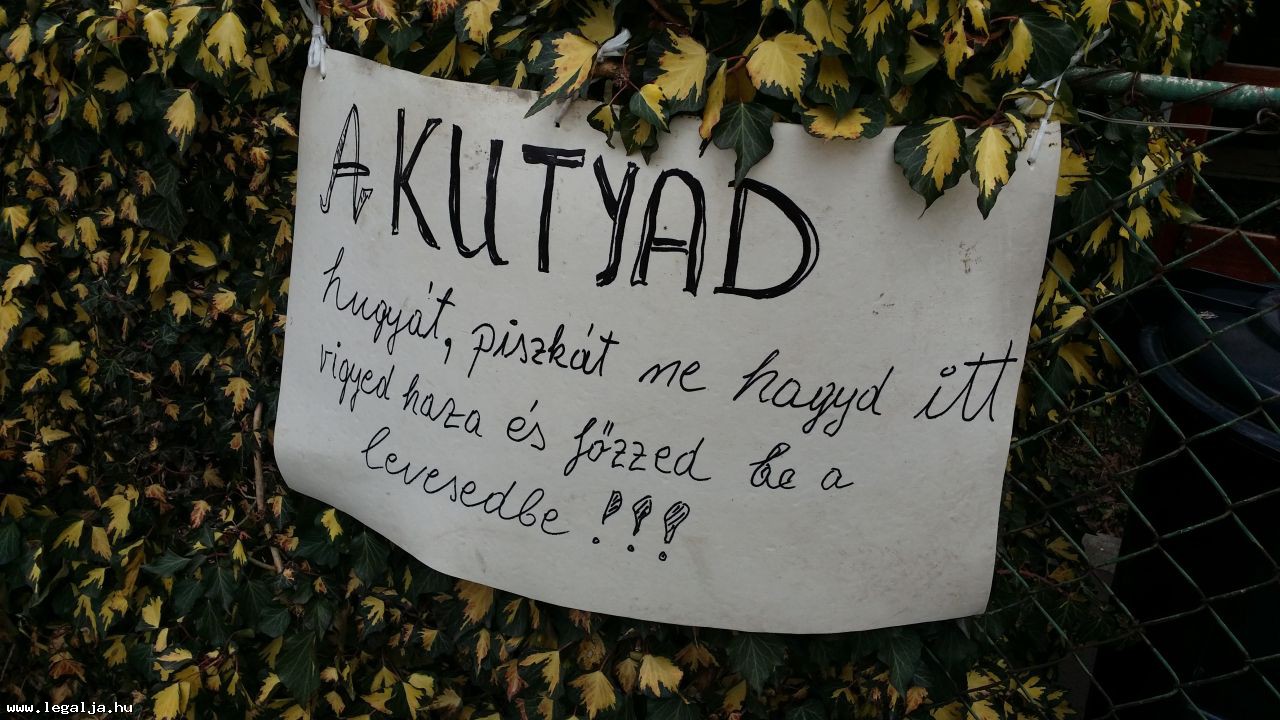 A KUTYÁD
hugyát, piszkát ne hagyd itt
vigyed haza és főzzed be a
levesedbe !!!
www.legalja.hu